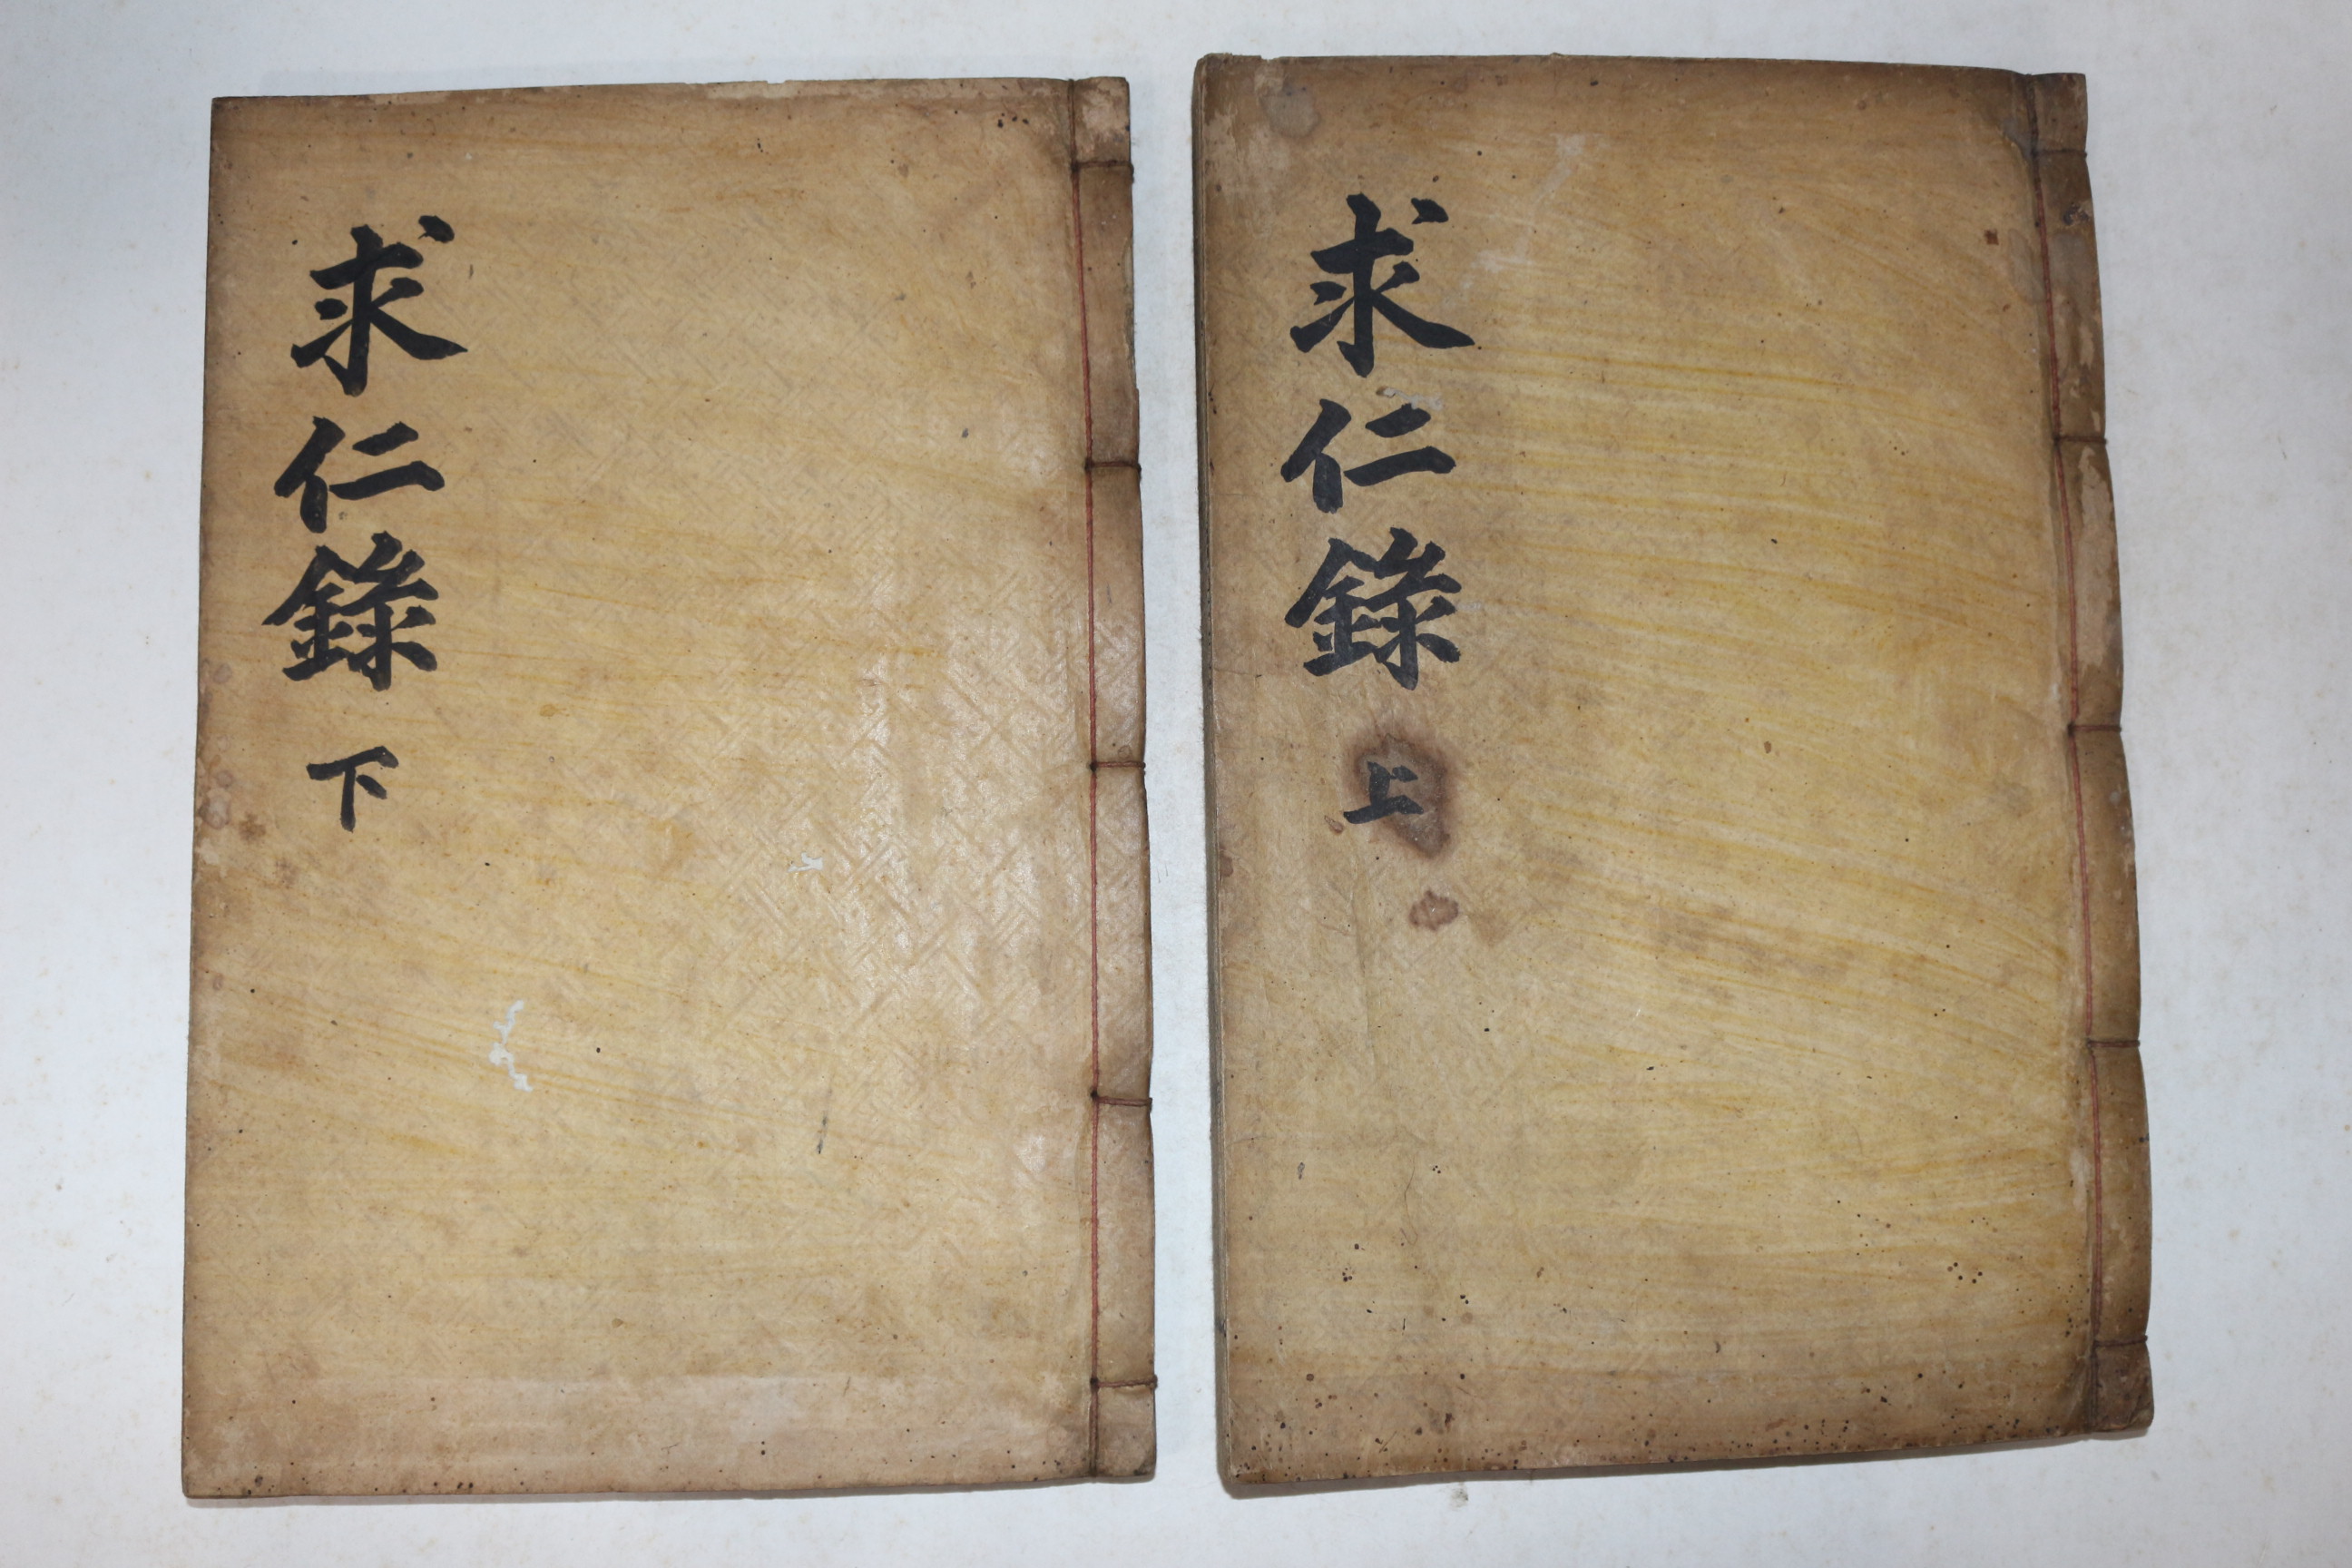 求仁錄 上
求仁錄 下